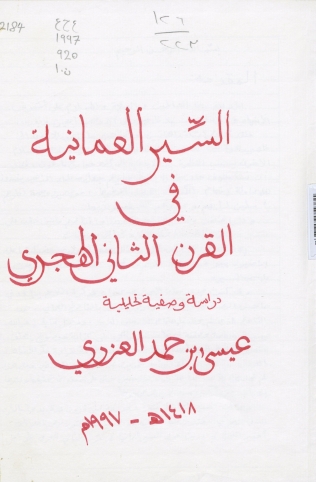 2184
ع ع ع
1997
920
١٢٦
٢٢٣
السِّير العمانية
في
القرن الثاني الهجري
دراسة وصفية تحليلية
عيسى بن حمد العزري
١٤١٨هـ - ١٩٩٧م